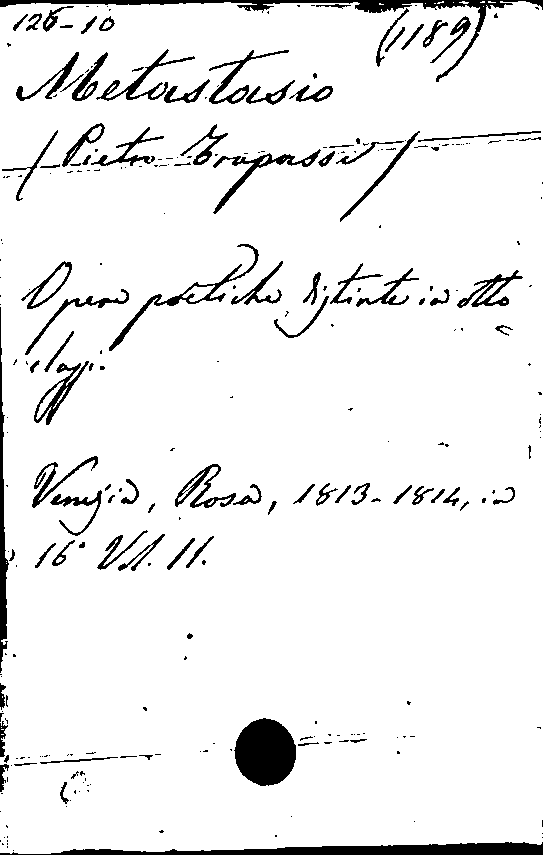 126-10
(1189)
Metastasio
(Pietro Trapassi)
Opere poetiche distinte in otto
classi.
Venezia, Rosa, 1813-1814, in
16° Vol. 11.